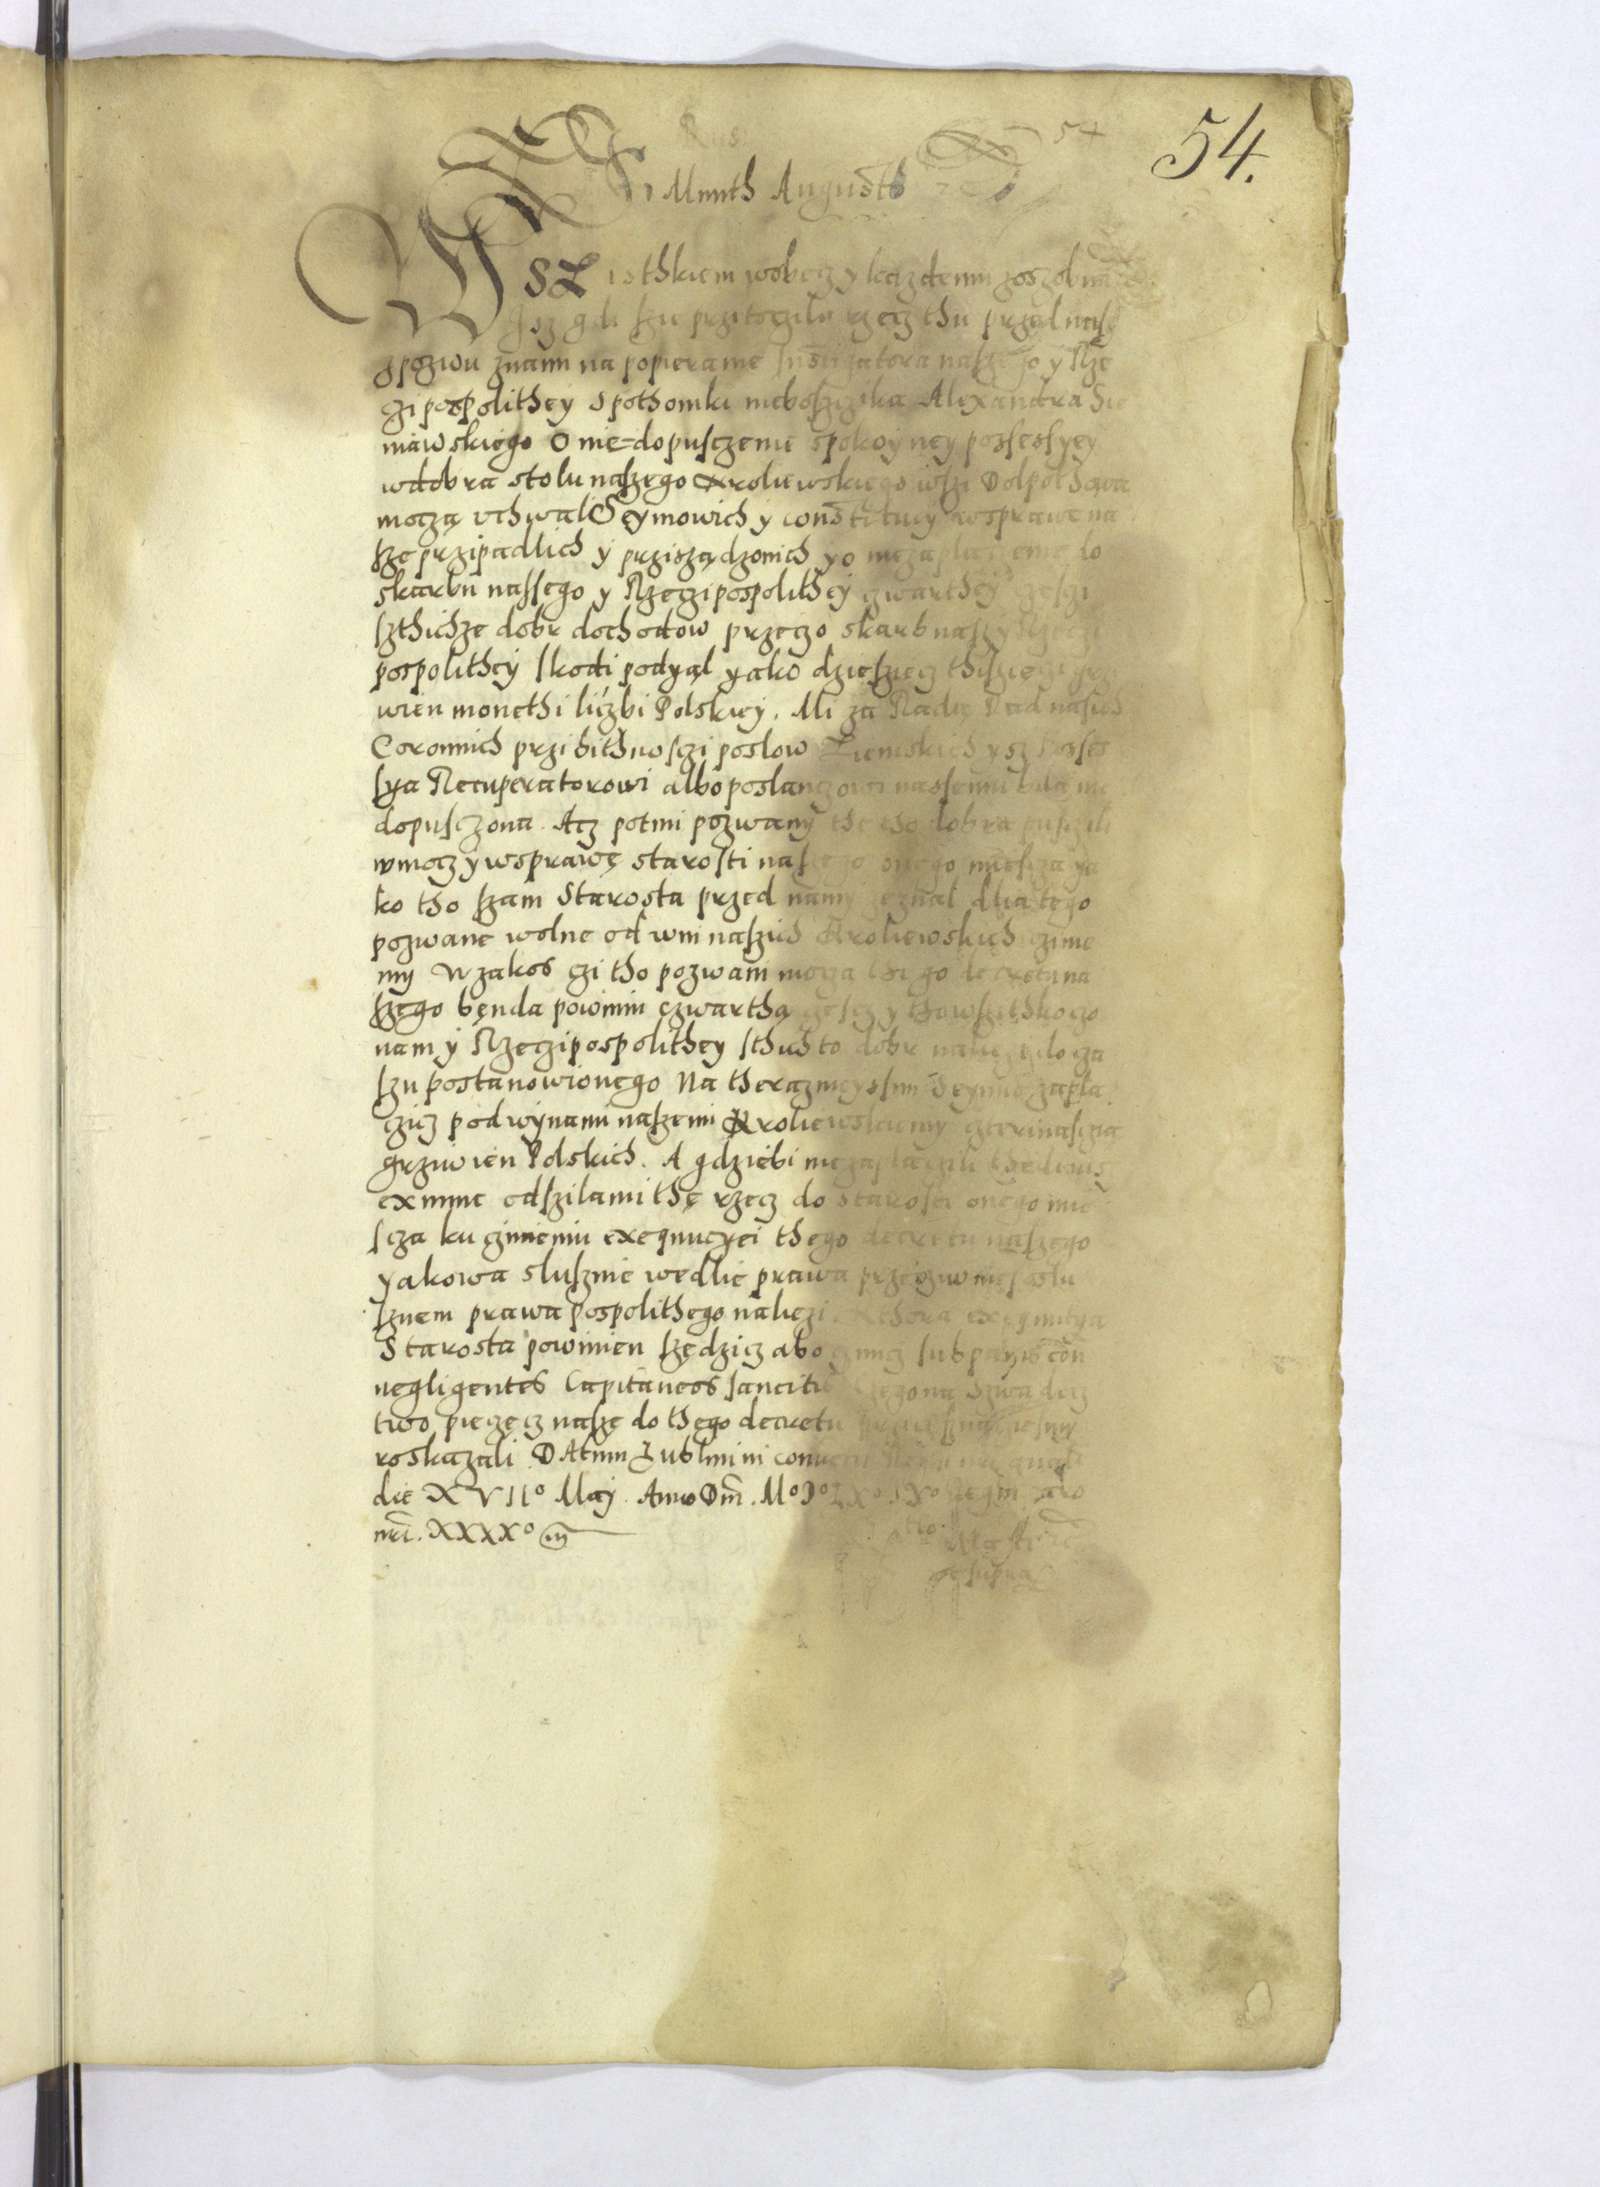 54.
54
Rus
Zigmunth Augusth
Wszisthkiem wobecz y kazdemu zoszobna
Jsz gdi szię przitoczila rzecz thu przed nasz
z pozwu znami na popieranie Instigatora naszego y Rze
czipospolithey s pothomki nieboszczika Alexandra Sie
niawskiego O nie=dopusczenie spokoyney possessyey
w dobra stolu naszego Kroliewskiego wszi Dolpothowa
moczą vchwal Seymowich y constitucy w sprawę na
szę przipadlich y przisządzonich y o niezaplaczenie do
skarbu nassego y Rzeczipospolithey czwarthey czesczi
szthichze dobr dochodow przeczo skarb nasz y Rzeczi
pospolithey skodi podyąl yako dzieszięcz thisziączi grzi
wien monethi liczbi Polskiey. Mi za Radą Rad nasich
Coronnich przi bithnosczi poslow Ziemskich ysz posses
sya Recuperatorowi albo poslanczowi nassemu bila nie
dopusczona. Acz potim pozwany the tho dobra pusczili
w mocz y w sprawę starosti naszego onego miescza ya
ko tho szam Starosta przed nami zeznal dlia tego
pozwane wolne od win naszich Kroliewskich czinie
my Wzakos czi tho pozwani moczą thego decretu na
szego bęnda powinni czwarthą czescz y tho wszithko czo
nam y Rzeczipospolithey sthich to dobr nalięzi do cza
szu postanowionego Na theraznieyssim Seymie zapla
czicz pod winami naszemi Kroliewskiemy czterinascia
grziwien Polskich. A gdziebi nie zaplaczili thedi wiąs
ex nunc odszilami thę rzecz do starosti onego mie
scza ku czinieniu exequucyei thego decretu naszego
yakowa slusznie wedlie prawa przecziw nieposlu
sznem prawa pospolithego należi. Kthora exequucya
Starosta powinien szędzicz abo czinicz sub pænis con
negligentes Capitaneos sancitis Czego na szwadecz
two pieczęcz naszę do thego decretu przicisznącz iesmy
roskazali DAtum Lublini in conventu Regni generali
die XVIIo Maij. Anno Dm̄. Mo Do LXo IXo Regni vero
nr̄i. XXXXo
ut supra